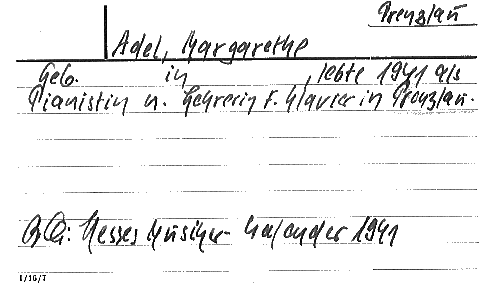 Prenzlau
Adel, Margarethe
Geb. in , lebte 1941 als
Pianistin u. Lehrerin f. Klavier in Prenzlau.
B.Qu: Hesses Musiker-Kalender 1941
1/16/7